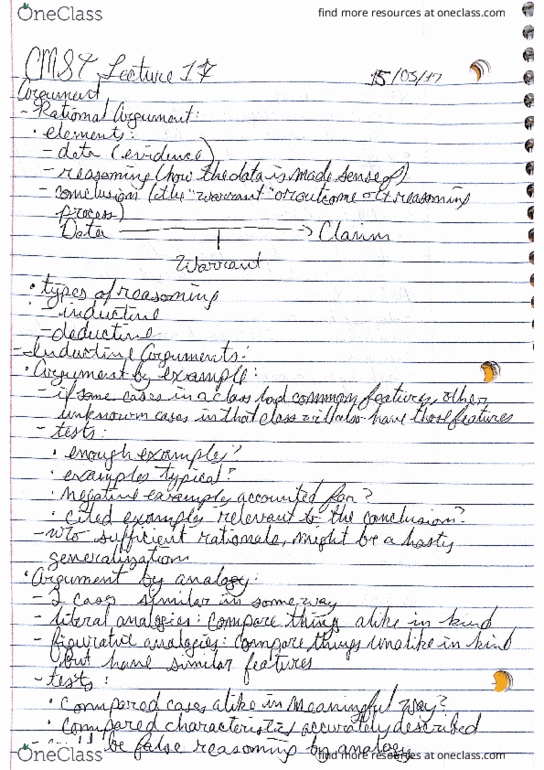 OneClass
find more resources at oneclass.com
CMST Lecture 17
15/05/17
Argument
- Rational Argument:
• elements:
- data (evidence)
- reasoning (how the data is made sense of)
- conclusion (the "warrant" or outcome of reasoning
process)
Data → Claim
Warrant
• types of reasoning
- inductive
- deductive
- Inductive Arguments:
• Argument by example:
- if some cases in a class had common features, other
unknown cases in that class will also have those features
- tests:
• enough examples?
• examples typical?
• negative examples accounted for?
• cited examples relevant to the conclusion?
- w/o sufficient rationale, might be a hasty
generalization
• Argument by analogy:
- 2 cases similar in some way
- literal analogies: compare things alike in kind
- figurative analogies: compare things unalike in kind
but have similar features
- tests:
• compared cases alike in meaningful way?
• compared characteristics accurately described
be false reasoning by analogy
OneClass
find more resources at oneclass.com